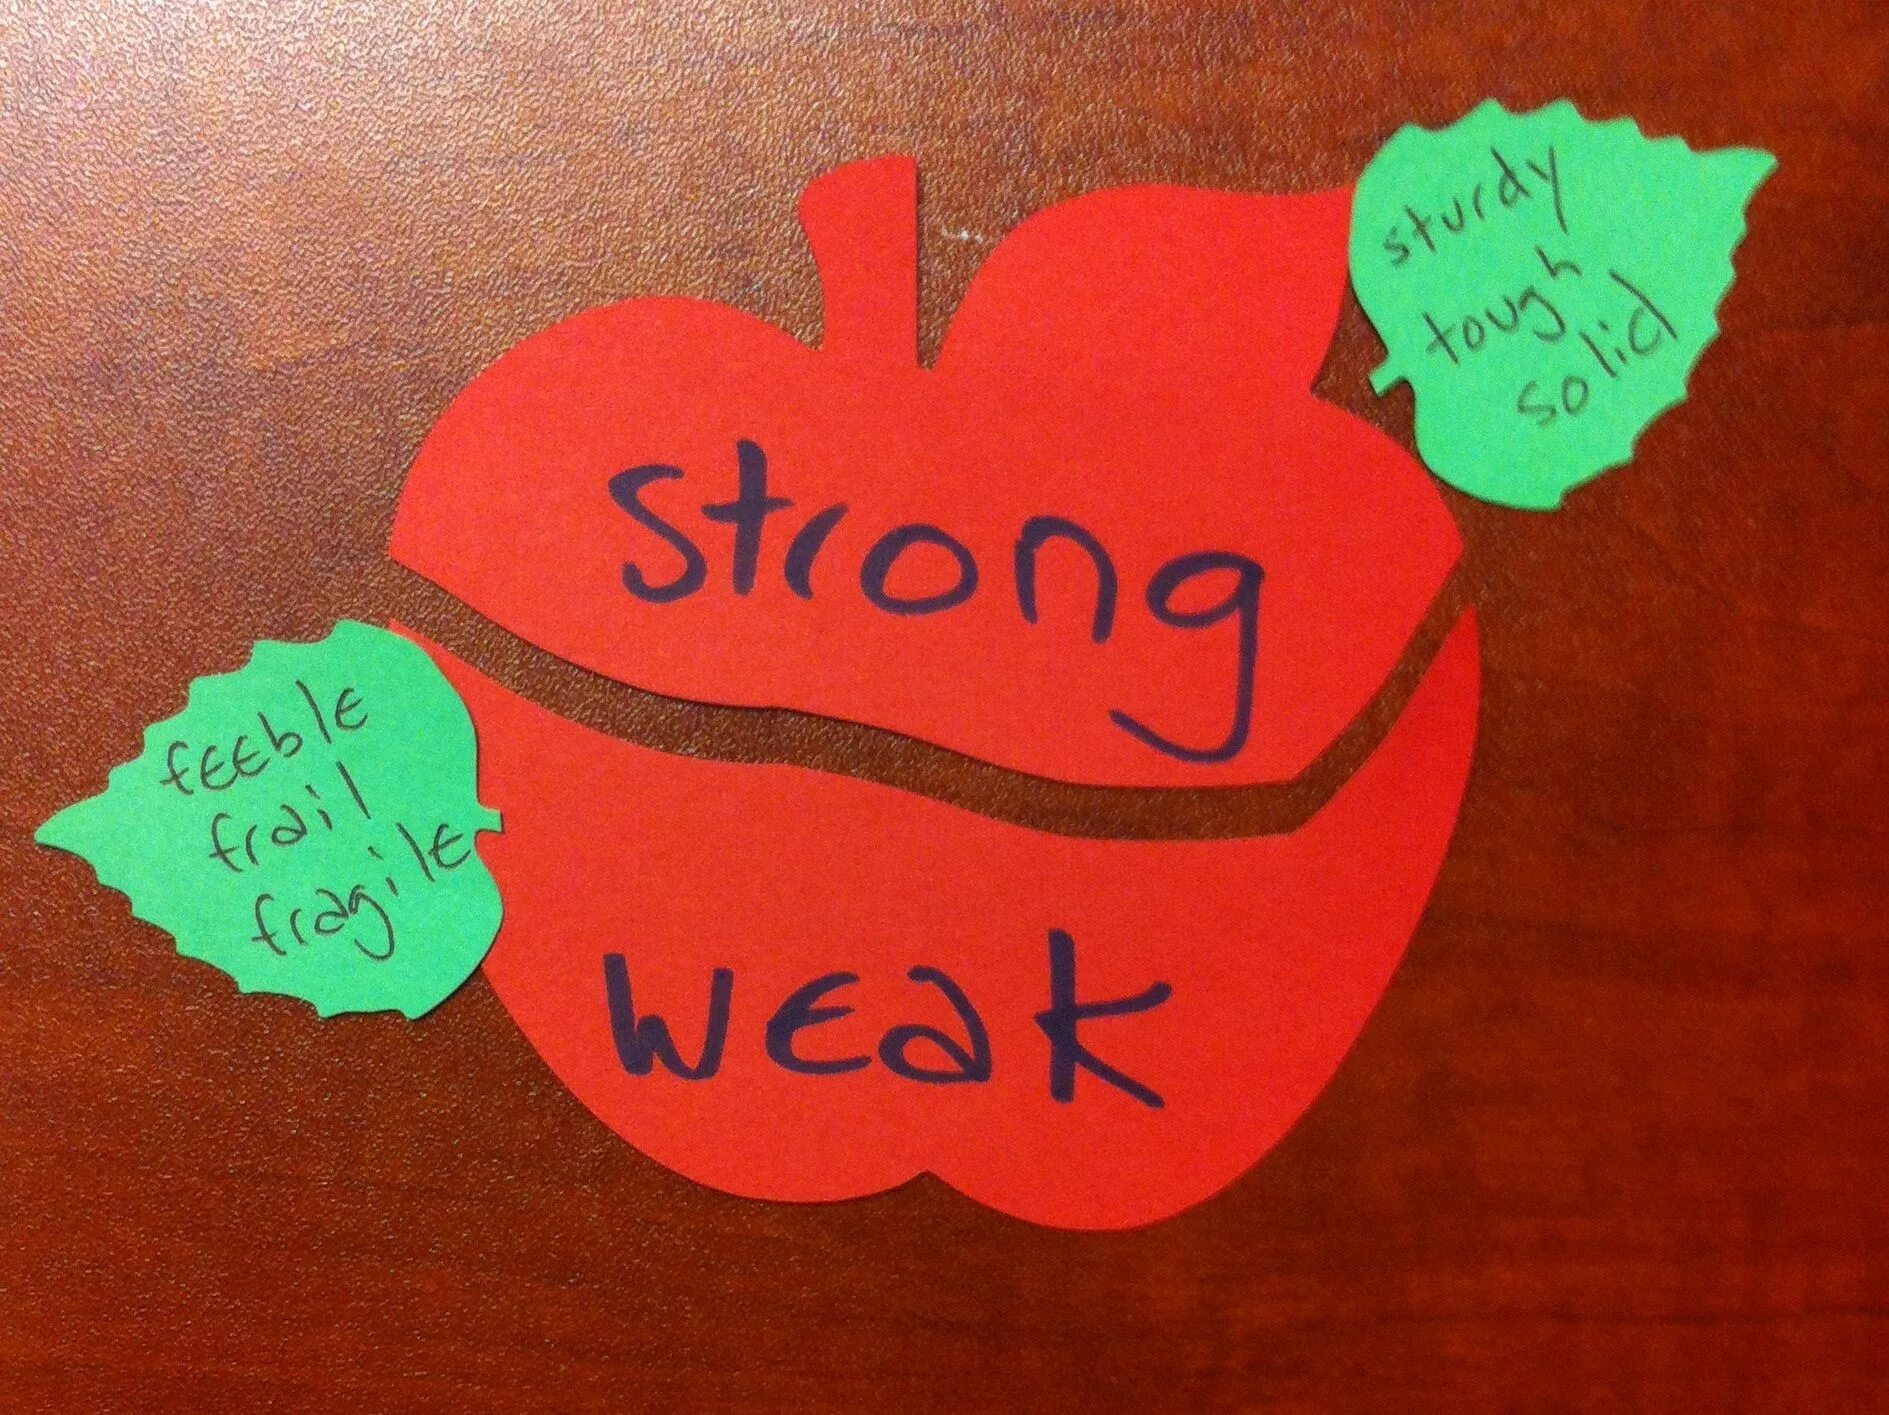 sturdy
tough
solid
strong
feeble
frail
fragile
weak